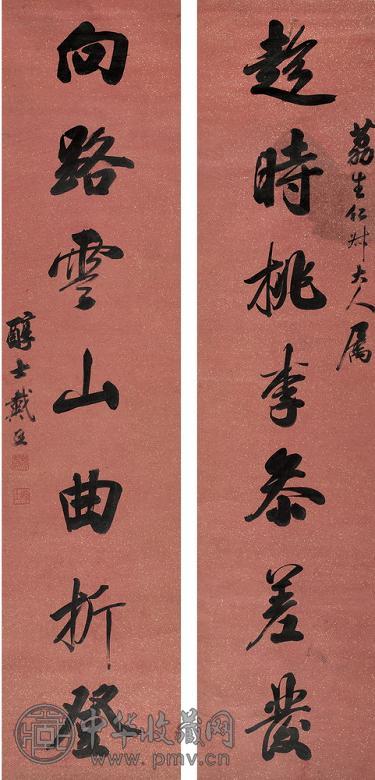 荔生仁叔大人屬
趁時桃李參差發
向路雲山曲折登
醇士戴熙
中华收藏网
www.pmv.cn